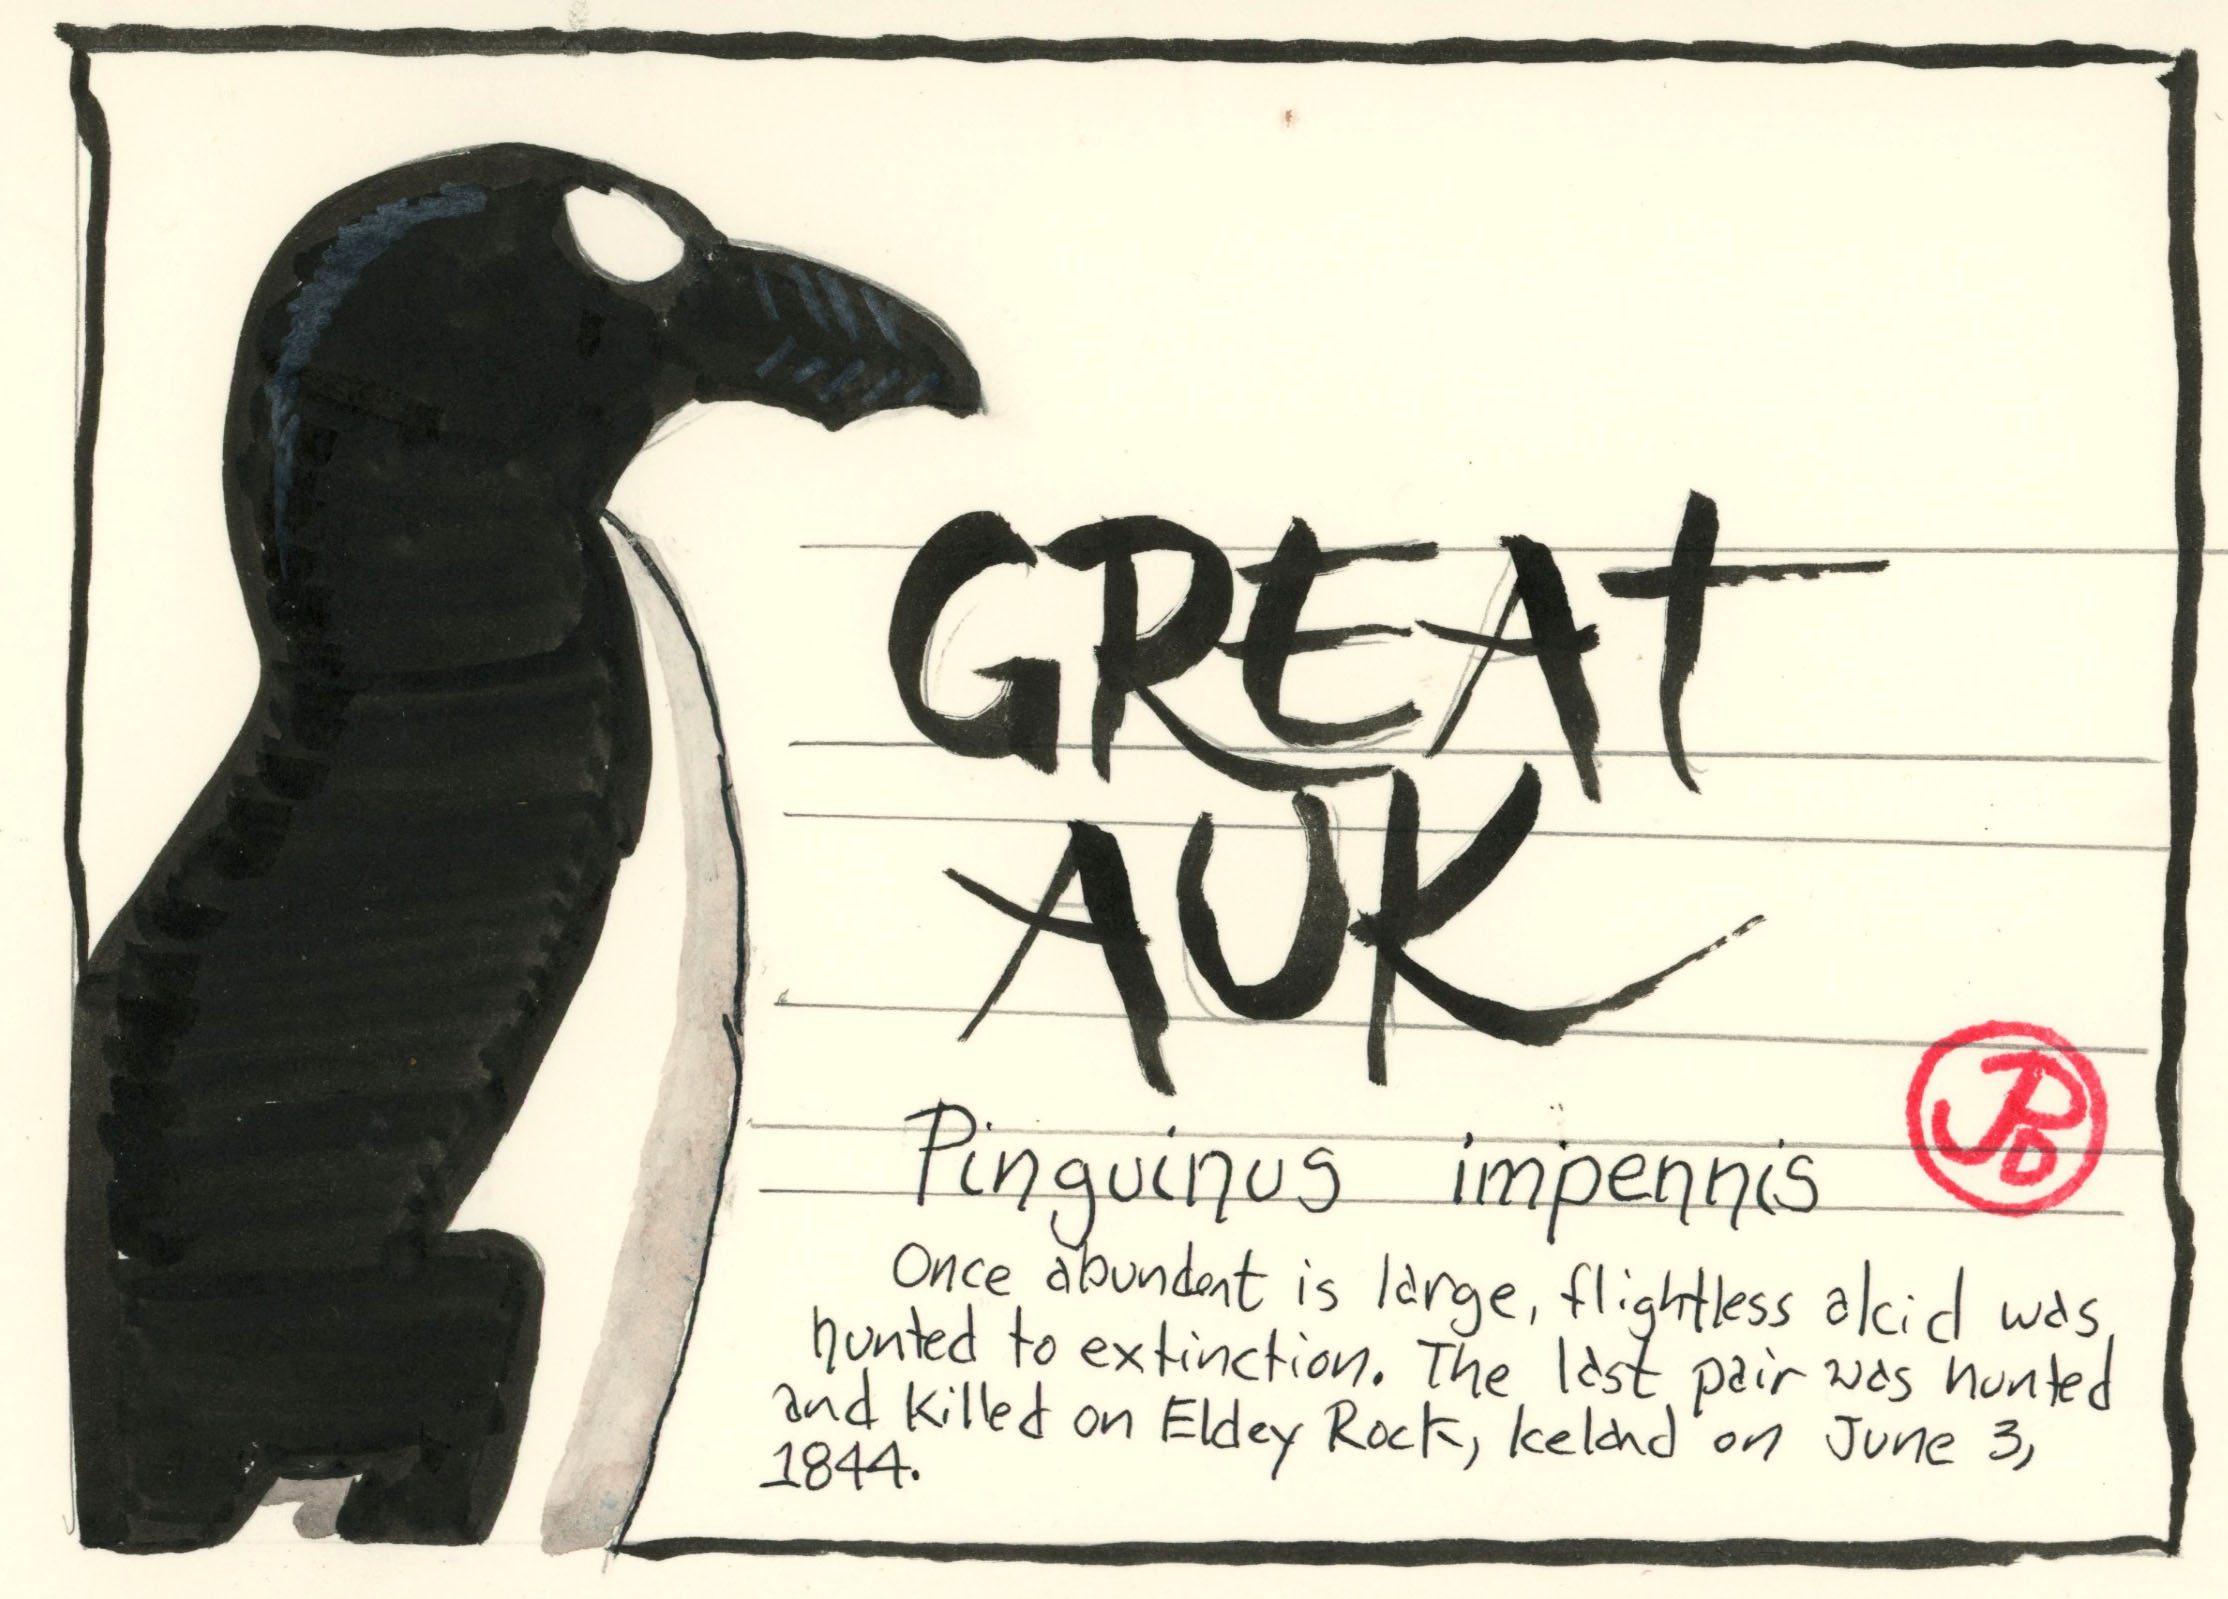 GREAT
AUK
Pinguinus impennis
JPB
Once abundant is large, flightless alcid was
hunted to extinction. The last pair was hunted
and killed on Eldey Rock, Iceland on June 3,
1844.